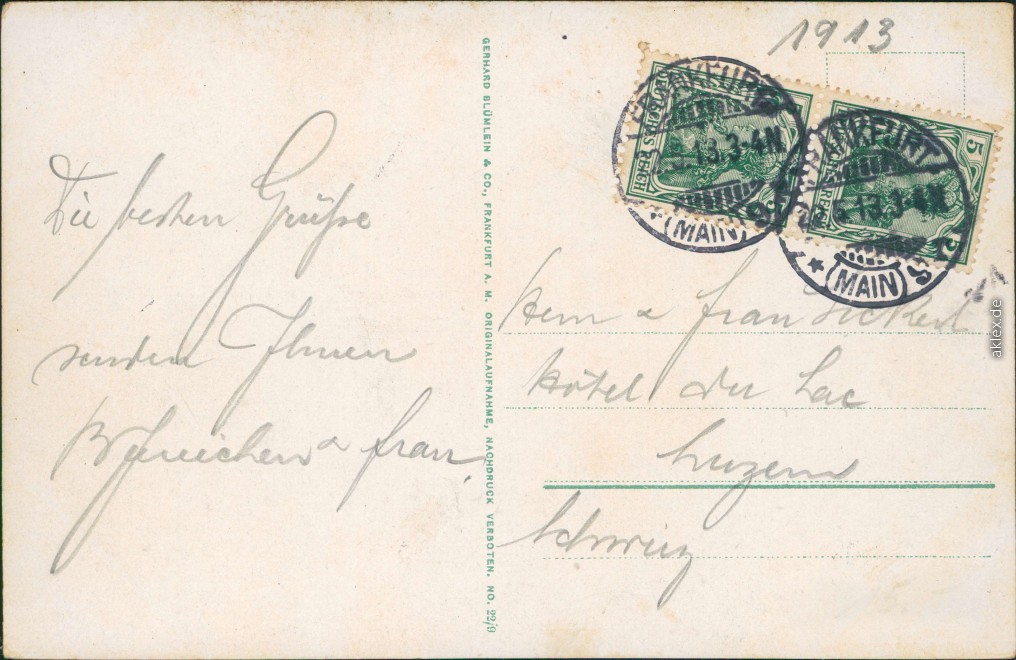 1913
Die besten Grüße
senden Ihnen
& Frau.
GERHARD BLÜMLEIN & CO., FRANKFURT A. M. ORIGINALAUFNAHME, NACHDRUCK VERBOTEN. NO. 22/9
DEUTSCHES REICH 5
DEUTSCHES REICH 5
FRANKFURT
.13.3-4N
(MAIN)
FRANKFURT
13.3-4N
(MAIN)
Herrn & Frau
Hôtel du Lac
Luzern
Schweiz
aklex.de